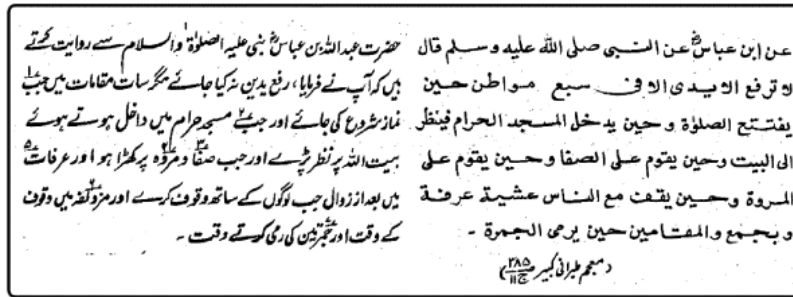 عن ابن عباسؓ عن النبی صلی الله علیه وسلم قال
لا ترفع الایدی الا فی سبع مواطن حین
یفتتح الصلوٰة و حین یدخل المسجد الحرام فینظر
الی البیت وحین یقوم علی الصفا وحین یقوم علی
المروة وحین یقف مع الناس عشیة عرفة
وبجمع والمقامین حین یرمی الجمرة ۔
(معجم طبرانی کبیر ج۱۱ ص۳۸۵)
حضرت عبداللہ بن عباسؓ نبی علیہ الصلوٰۃ والسلام سے روایت کرتے
ہیں کہ آپ نے فرمایا، رفع یدین نہ کیا جائے مگر سات مقامات میں جب۱
نماز شروع کی جائے اور جب۲ مسجد حرام میں داخل ہوتے ہوئے
بیت اللہ پر نظر پڑے اور جب صفا۳ و مروہ۴ پر کھڑا ہو اور عرفات۵
میں بعد از زوال جب لوگوں کے ساتھ وقوف کرے اور مزدلفہ۶ میں وقوف
کے وقت اور جمرتین۷ کی رمی کرتے وقت ۔